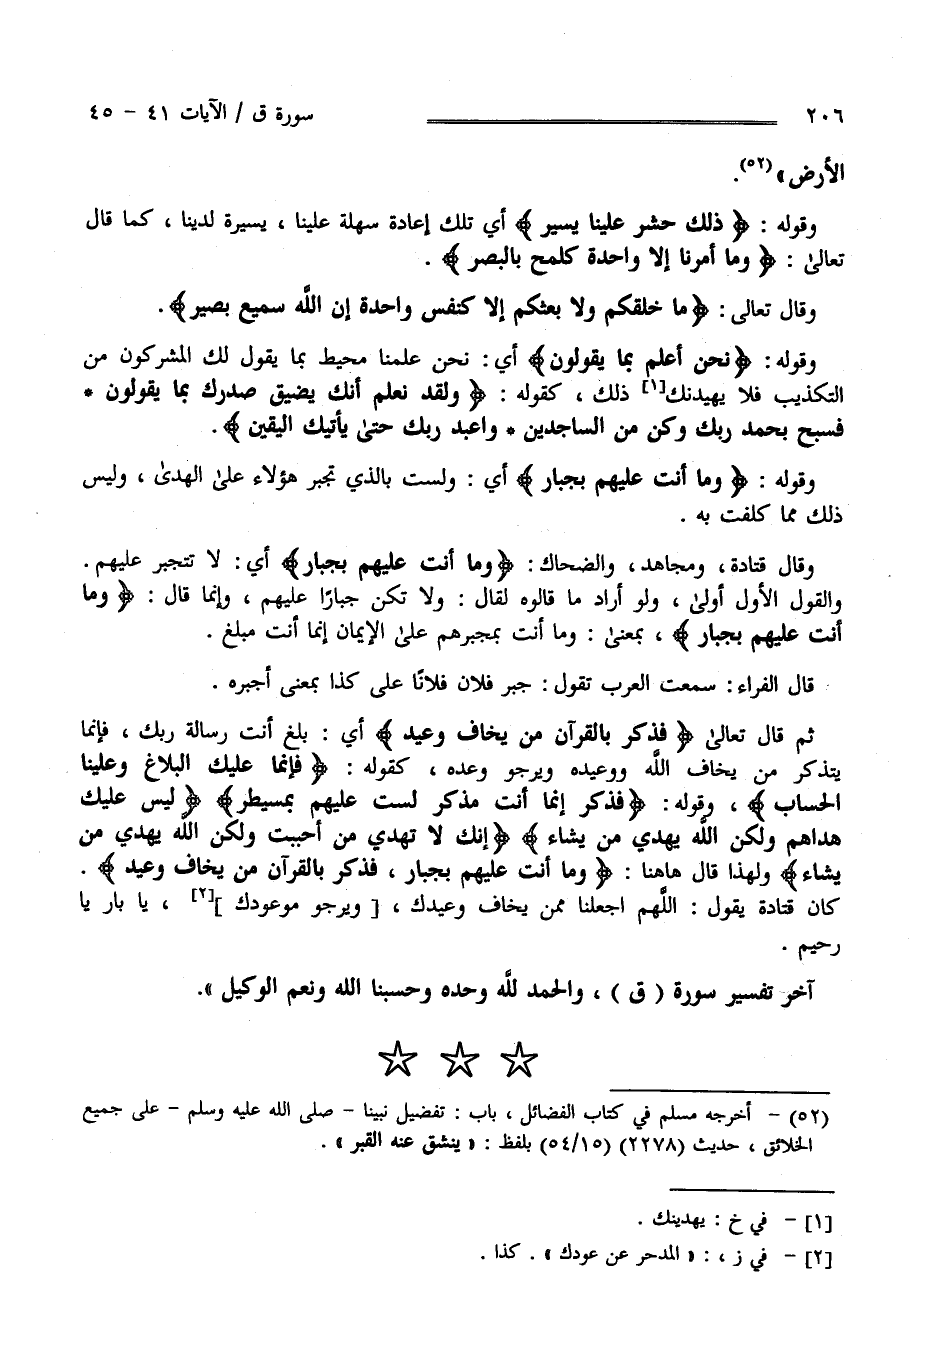 ٢٠٦ سورة ق / الآيات ٤١ - ٤٥
الأرض»(٥٢).
وقوله : ﴿ ذلك حشر علينا يسير ﴾ أي تلك إعادة سهلة علينا ، يسيرة لدينا ، كما قال
تعالىٰ : ﴿ وما أمرنا إلا واحدة كلمح بالبصر ﴾ .
وقال تعالى : ﴿ما خلقكم ولا بعثكم إلا كنفس واحدة إن اللَّه سميع بصير﴾.
وقوله: ﴿نحن أعلم بما يقولون﴾ أي: نحن علمنا محيط بما يقول لك المشركون من
التكذيب فلا يهيدنك[١] ذلك ، كقوله : ﴿ ولقد نعلم أنك يضيق صدرك بما يقولون *
فسبح بحمد ربك وكن من الساجدين * واعبد ربك حتىٰ يأتيك اليقين ﴾.
وقوله : ﴿ وما أنت عليهم بجبار ﴾ أي : ولست بالذي تجبر هؤلاء علىٰ الهدىٰ ، وليس
ذلك مما كلفت به .
وقال قتادة، ومجاهد، والضحاك: ﴿وما أنت عليهم بجبار﴾ أي: لا تتجبر عليهم.
والقول الأول أولىٰ ، ولو أراد ما قالوه لقال : ولا تكن جبارًا عليهم ، وإنما قال : ﴿ وما
أنت عليهم بجبار ﴾ ، بمعنىٰ : وما أنت بمجبرهم علىٰ الإيمان إنما أنت مبلغ .
قال الفراء: سمعت العرب تقول: جبر فلان فلانًا على كذا بمعنى أجبره .
ثم قال تعالىٰ ﴿ فذكر بالقرآن من يخاف وعيد ﴾ أي : بلغ أنت رسالة ربك ، فإنما
يتذكر من يخاف اللَّه ووعيده ويرجو وعده ، كقوله : ﴿ فإنما عليك البلاغ وعلينا
الحساب ﴾ ، وقوله: ﴿فذكر إنما أنت مذكر لست عليهم بمسيطر﴾ ﴿ ليس عليك
هداهم ولكن اللَّه يهدي من يشاء ﴾ ﴿إنك لا تهدي من أحببت ولكن اللَّه يهدي من
يشاء﴾ ولهذا قال هاهنا : ﴿ وما أنت عليهم بجبار ، فذكر بالقرآن من يخاف وعيد ﴾ .
كان قتادة يقول : اللَّهم اجعلنا ممن يخاف وعيدك ، [ ويرجو موعودك ][٢] ، يا بار يا
رحيم .
آخر تفسير سورة ( ق ) ، والحمد للَّه وحده وحسبنا الله ونعم الوكيل ».
(٥٢) - أخرجه مسلم في كتاب الفضائل ، باب : تفضيل نبينا - صلى الله عليه وسلم - على جميع
الخلائق ، حديث (٢٢٧٨) (٥٤/١٥) بلفظ : « ينشق عنه القبر » .
[١] - في خ : يهدينك .
[٢] - في ز ، : « المدحر عن عودك » . كذا .